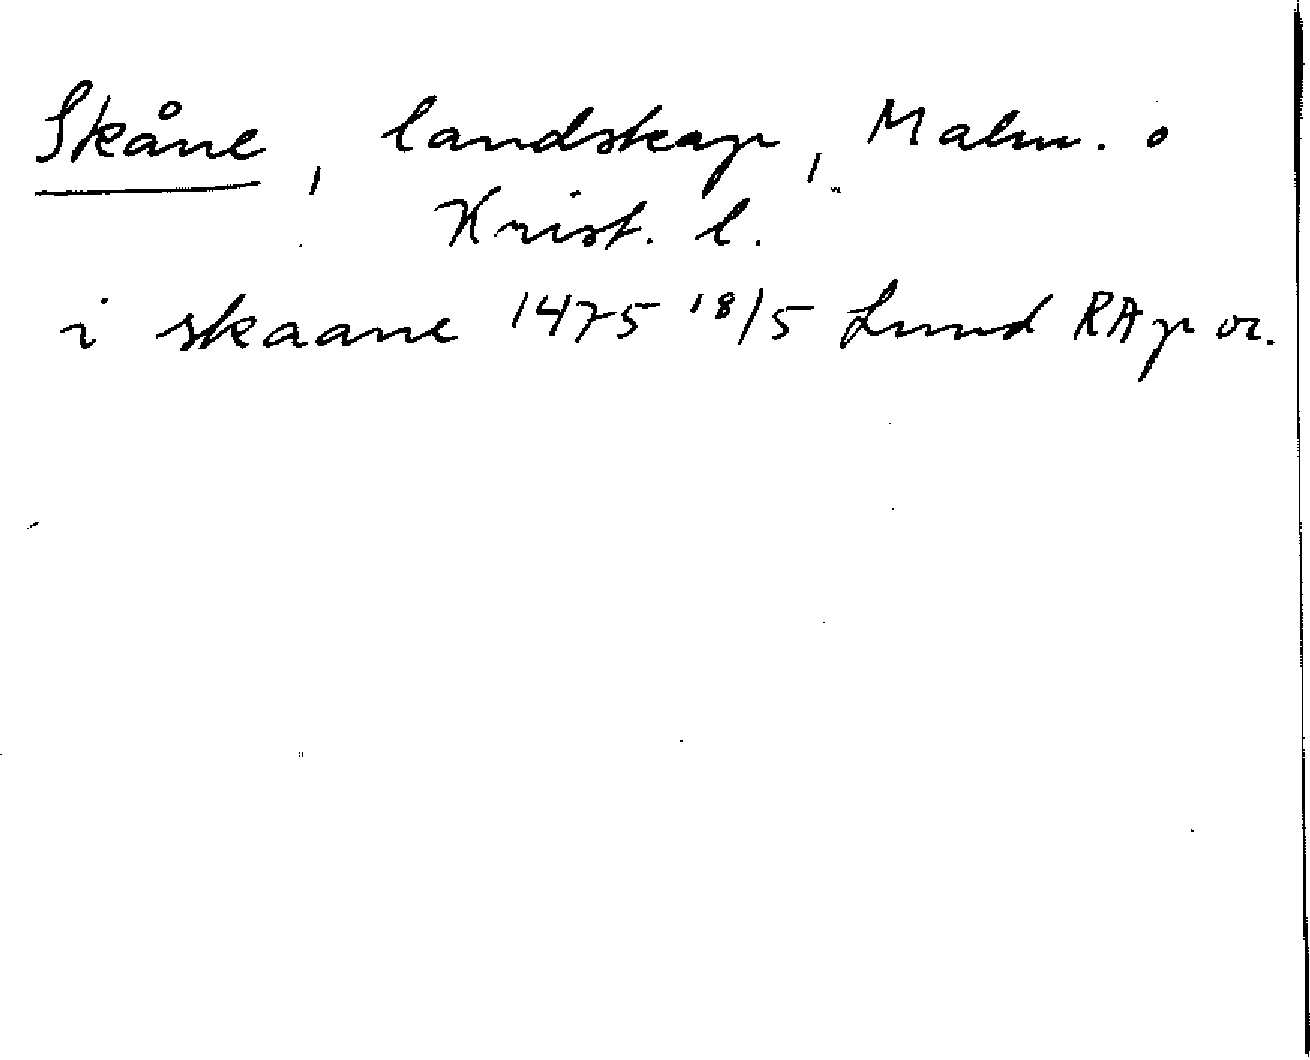 Skåne, landskap, Malm. o
Krist. l.
i skaane 1475 18/5 Lund RAp or.